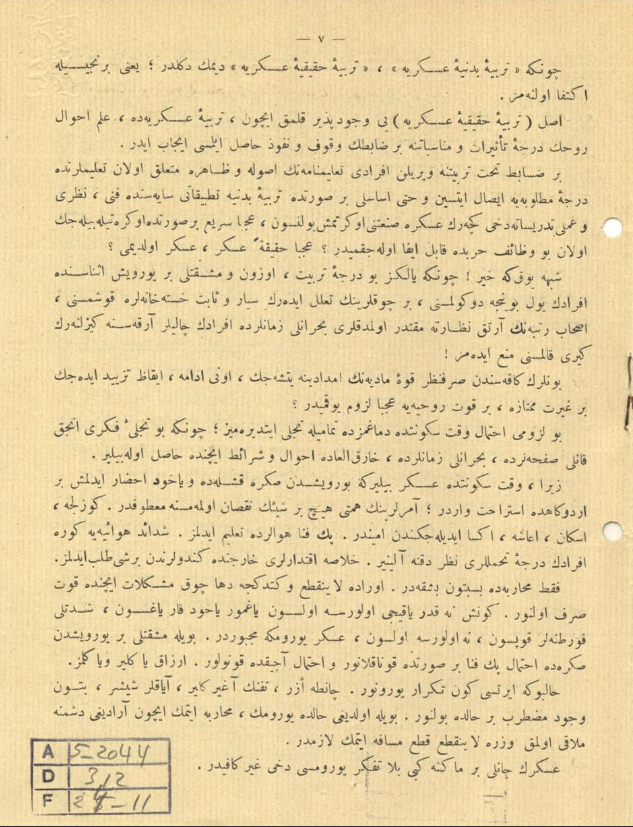 — ٧ —
چونكه « تربيهٔ بدنيهٔ عسكريه » ، « تربيهٔ حقيقيهٔ عسكريه » ديمك دكلدر ؛ يعنى برنجيسيله
اكتفا اولنه‌مز .
اصل ( تربيهٔ حقيقيهٔ عسكريه ) يى وجودپذير قلمق ايچون ، تربيهٔ عسكريه‌ده ، علم احوال
روحك درجهٔ تأثيرات و مناسباتنه بر ضابطك وقوف و نفوذ حاصل ايتلسى ايجاب ايدر .
بر ضابط تحت تربيتنه ويريلن افرادى تعليمنامه‌نك اصوله و ظاهره متعلق اولان تعليملرنده
درجهٔ مطلوبه‌يه ايصال ايتسين و حتى اساسلى بر صورتده تربيهٔ بدنيه تطبيقاتى سايه‌سنده فنى ، نظرى
و عملى تدريساته‌دخى كچه‌رك عسكره صنعتنى اوكرتمش‌بولنسون ، عجبا سريع برصورتده اوكره‌تيله‌بيله‌جك
اولان بو وظائف حربده قابل ايفا اوله‌جقميدر ؟ عجبا حقيقةً عسكر ، عسكر اولديمى ؟
شبهه يوق‌كه خير ! چونكه يالكز بو درجهٔ تربيت ، اوزون و مشقتلى بر يورويش اثناسنده
افرادك يول بوينجه دوكولمسنى ، بر چوقلرينك تعلل ايده‌رك سيار و ثابت خسته‌خانه‌لره قوشمسنى ،
اصحاب رتبه‌نك آرتق نظارته مقتدر اولمدقلرى بحرانلى زمانلرده افرادك چاليلر آرقه‌سنه كيزلنه‌رك
كيرى قالمسنى منع ايده‌مز !
بونلرك كافه‌سندن صرفنظر قوهٔ ماديه‌نك امدادينه يتشه‌جك ، اونى ادامه ، ايقاظ تزييد ايده‌جك
بر غيرت ممتازه ، بر قوت روحيه‌يه عجبا لزوم يوقميدر ؟
بو لزومى احتمال وقت سكوننده دماغمزده تماميله تجلى ايتديره‌ميز ؛ چونكه بو تجلىٔ فكرى انجق
قانلى صفحه‌لرده ، بحرانلى زمانلرده ، خارق‌العاده احوال و شرائط ايچنده حاصل اوله‌بيلير .
زيرا ، وقت سكوننده عسكر بيليركه يورويشدن صكره قشله‌ده و ياخود احضار ايدلمش بر
اردوكاهده استراحت واردر ؛ آمرلرينك همتى هيچ بر شيئك نقصان اولمه‌مسنه معطوفدر . كوزلجه ،
اسكان ، اعاشه ، اكسا ايديله‌جكندن اميندر . پك فنا هوالرده تعليم ايدلمز . شدائد هوائيه‌يه كوره
افرادك درجهٔ تحمللرى نظر دقته آلينير . خلاصه اقتدارلرى خارجنده كندولرندن برشى طلب‌ايدلمز .
فقط محاربه‌ده بسبتون بشقه‌در . اوراده لاينقطع و كتدكجه دها چوق مشكلات ايچنده قوت
صرف اولنور . كونش نه قدر ياقيجى اولورسه اولسون ياغمور ياخود قار ياغسون ، شدتلى
فورطنه‌لر قوپسون ، نه اولورسه اولسون ، عسكر يورومكه مجبوردر . بويله مشقتلى بر يورويشدن
صكره‌ده احتمال پك فنا بر صورتده قوناقلانور و احتمال آچيقده قونولور . ارزاق يا كلير ويا كلمز .
حالبوكه ايرتسى كون تكرار يورونور . چانطه أزر ، تفنك آغير كلير ، آياقلر شيشر ، بتون
وجود مضطرب بر حالده بولنور . بويله اولديغى حالده يورومك ، محاربه ايتمك ايچون آراديغى دشمنه
ملاقى اولمق وزره لاينقطع قطع مسافه ايتمك لازمدر .
عسكرك جانلى بر ماكنه كبى بلا تفكر يورومسى دخى غير كافيدر .
A 5-2044
D 3,2
F 11-